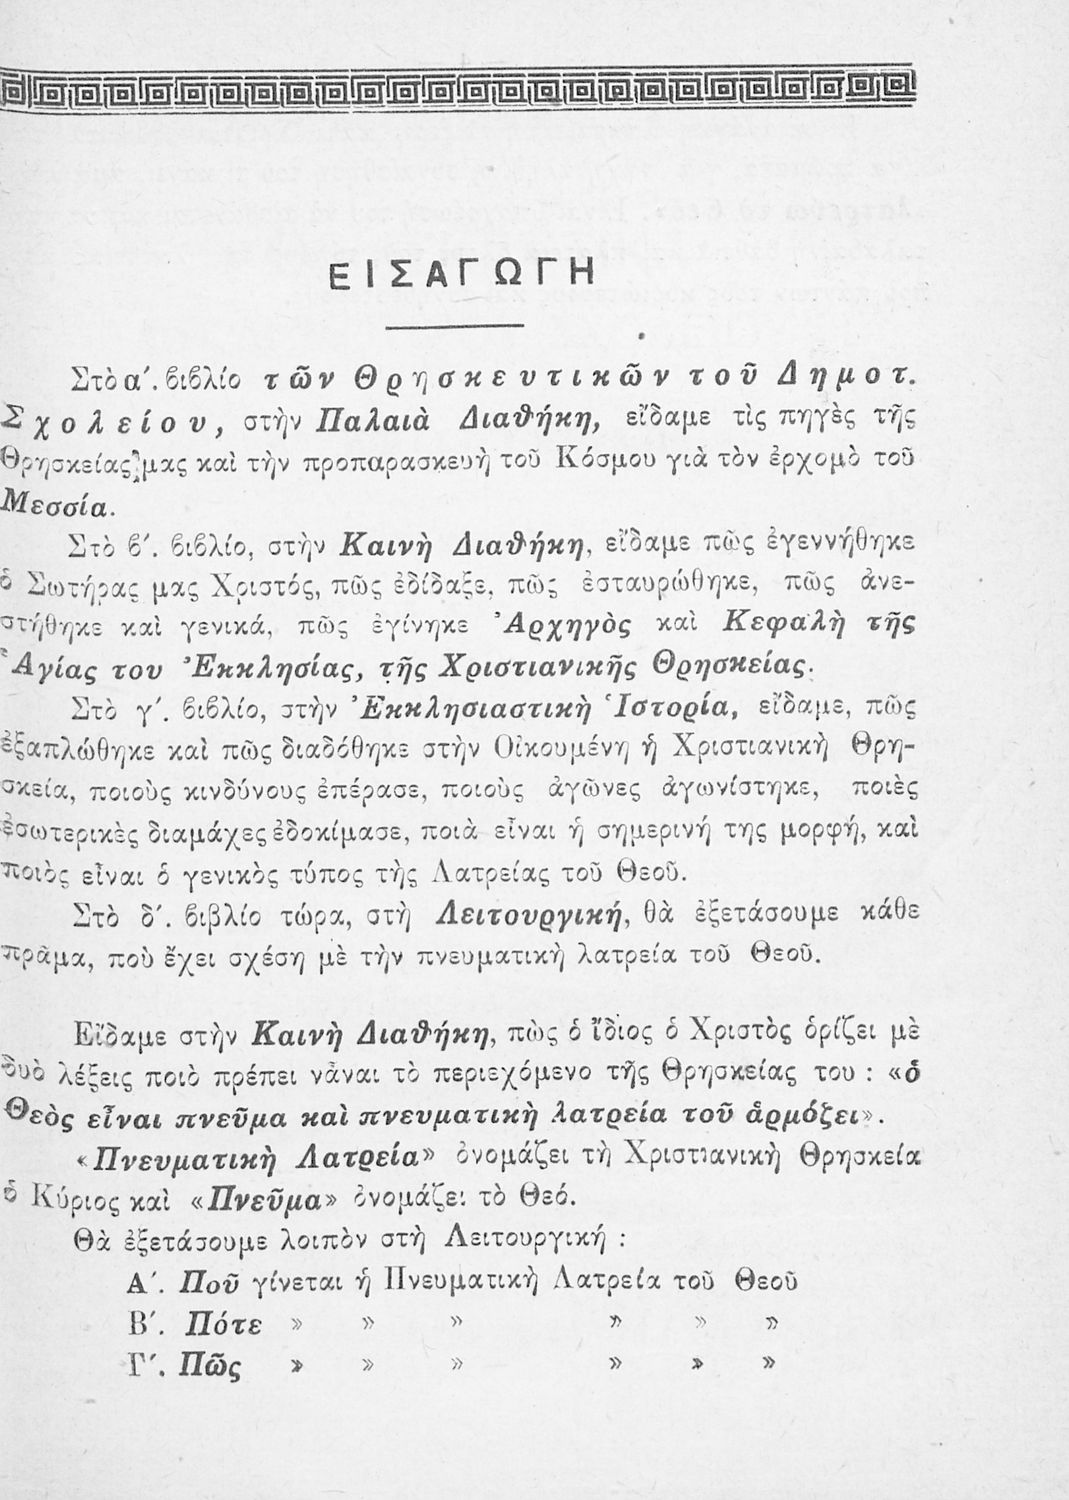 ΕΙΣΑΓΩΓΗ
Στὸ α΄. βιβλίο τῶν Θρησκευτικῶν τοῦ Δημοτ.
Σχολείου, στὴν Παλαιὰ Διαθήκη, εἴδαμε τὶς πηγὲς τῆς
Θρησκείας μας καὶ τὴν προπαρασκευὴ τοῦ Κόσμου γιὰ τὸν ἐρχομὸ τοῦ
Μεσσία.
Στὸ β΄. βιβλίο, στὴν Καινὴ Διαθήκη, εἴδαμε πῶς ἐγεννήθηκε
ὁ Σωτήρας μας Χριστός, πῶς ἐδίδαξε, πῶς ἐσταυρώθηκε, πῶς ἀνε-
στήθηκε καὶ γενικά, πῶς ἐγίνηκε Ἀρχηγὸς καὶ Κεφαλὴ τῆς
Ἁγίας του Ἐκκλησίας, τῆς Χριστιανικῆς Θρησκείας.
Στὸ γ΄. βιβλίο, στὴν Ἐκκλησιαστικὴ Ἱστορία, εἴδαμε, πῶς
ἐξαπλώθηκε καὶ πῶς διαδόθηκε στὴν Οἰκουμένη ἡ Χριστιανικὴ Θρη-
σκεία, ποιοὺς κινδύνους ἐπέρασε, ποιοὺς ἀγῶνες ἀγωνίστηκε, ποιὲς
ἐσωτερικὲς διαμάχες ἐδοκίμασε, ποιὰ εἶναι ἡ σημερινή της μορφή, καὶ
ποιὸς εἶναι ὁ γενικὸς τύπος τῆς Λατρείας τοῦ Θεοῦ.
Στὸ δ΄. βιβλίο τώρα, στὴ Λειτουργική, θὰ ἐξετάσουμε κάθε
πρᾶμα, ποὺ ἔχει σχέση μὲ τὴν πνευματικὴ λατρεία τοῦ Θεοῦ.
Εἴδαμε στὴν Καινὴ Διαθήκη, πὼς ὁ ἴδιος ὁ Χριστὸς ὁρίζει μὲ
δυὸ λέξεις ποιὸ πρέπει νἆναι τὸ περιεχόμενο τῆς Θρησκείας του : «ὁ
Θεὸς εἶναι πνεῦμα καὶ πνευματικὴ λατρεία τοῦ ἁρμόζει».
«Πνευματικὴ Λατρεία» ὀνομάζει τὴ Χριστιανικὴ Θρησκεία
ὁ Κύριος καὶ «Πνεῦμα» ὀνομάζει τὸ Θεό.
Θὰ ἐξετάσουμε λοιπὸν στὴ Λειτουργική :
Α΄. Ποῦ γίνεται ἡ Πνευματικὴ Λατρεία τοῦ Θεοῦ
Β΄. Πότε » » » » » »
Γ΄. Πῶς » » » » » »